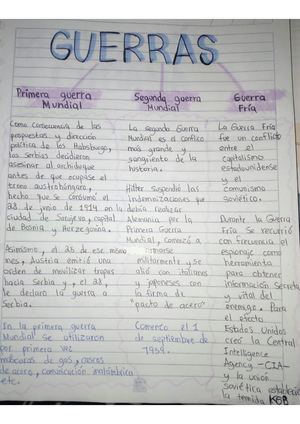 GUERRAS
Primera guerra
Mundial
Como consecuencia de las
propuestas y dirección
política de los Habsburgo,
los Serbios decidieron
asesinar al archiduque
antes de que ocupase el
trono austrohúngaro,
hecho que se consumó el
28 de junio de 1914 en la
ciudad de Sarajevo, capital
de Bosnia y Herzegovina.
Asimismo, el 25 de ese mismo
mes, Austria emitió una
orden de movilizar tropas
hacia Serbia y, el 28,
le declaro la guerra a
Serbia.
En la primera guerra
Mundial se utilizaron
por primera vez
máscaras de gas, gases
de acero, comunicación inalámbrica
etc.
Segunda guerra
Mundial
La segunda Guerra
Mundial es el conflico
mas grande y
sangriento de la
historia.
Hitler suspendió las
indemnizaciones que
debía realizar
Alemania, por la
Primera Guerra
Mundial, comenzó a
armarse
militarmente y se
alió con italianos
y japoneses con
la firma de
"pacto de acero"
Comenzo el 1
de septiembre de
1939.
Guerra
Fría
La Guerra Fría
fue un conflicto
entre el
capitalismo
estadounidense
y el
comunismo
soviético.
Durante la Guerra
Fría se recurrió
con frecuencia el
espionaje como
herramienta
para obtener
información Secreta
y vital del
enemigo. Para
el efecto
Estados Unidos
creó la Central
Intelligence
Agency -CIA-
y la unión
soviética estableció
la temida KGB